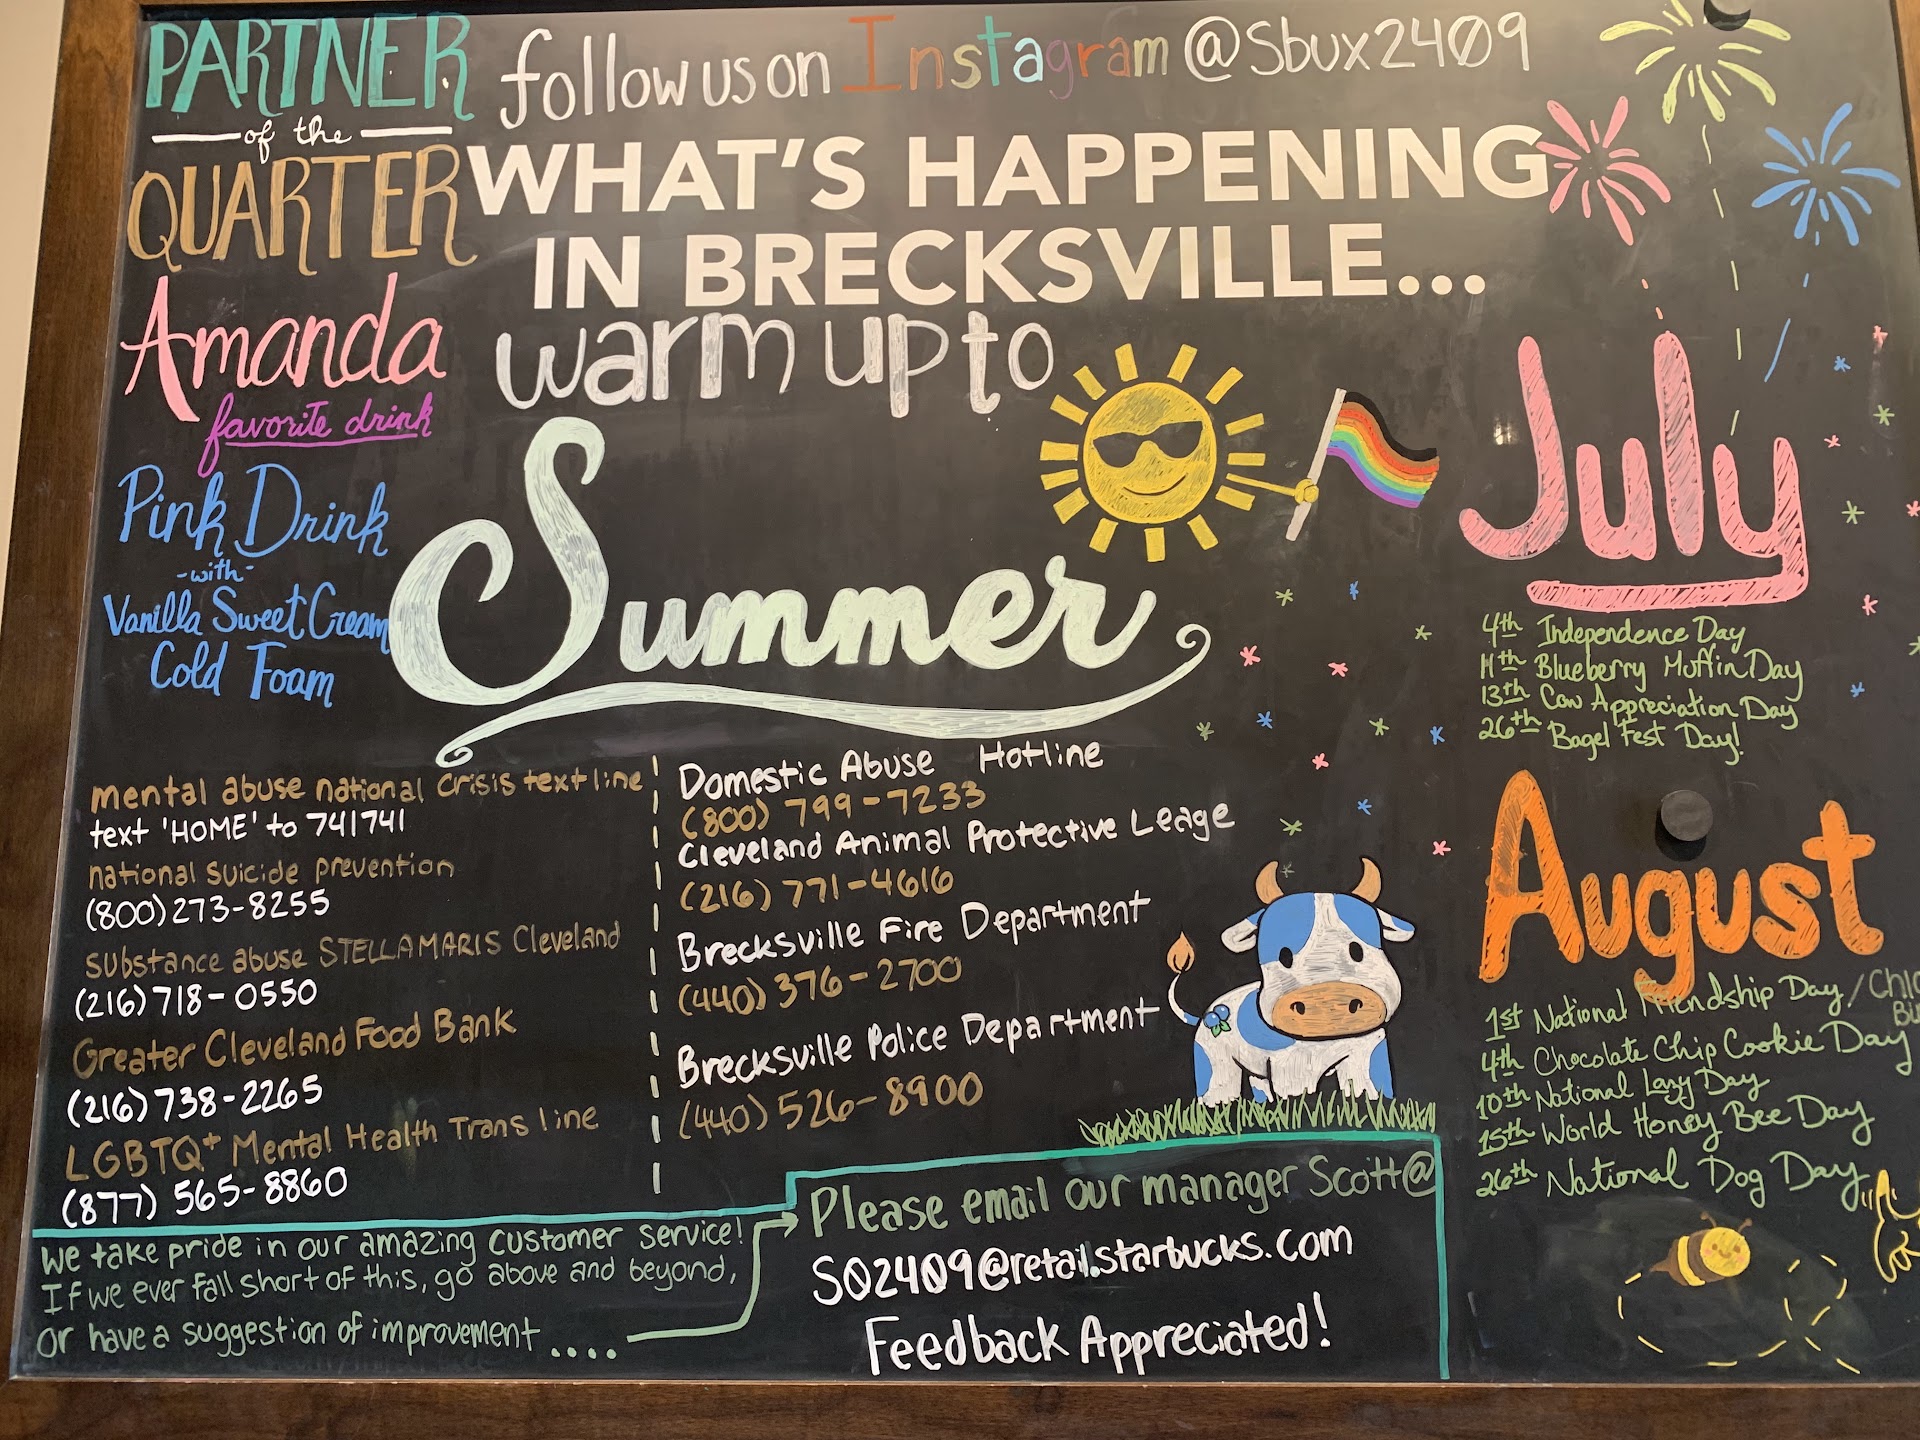 PARTNER
of the
QUARTER
Amanda
favorite drink
Pink Drink
-with-
Vanilla Sweet Cream
Cold Foam
follow us on Instagram @Sbux2409
WHAT'S HAPPENING
IN BRECKSVILLE...
warm up to
Summer
July
4th Independence Day
11th Blueberry Muffin Day
13th Cow Appreciation Day
26th Bagel Fest Day!
August
1st National Friendship Day /
4th Chocolate Chip Cookie Day
10th National Lazy Day
15th World Honey Bee Day
26th National Dog Day
mental abuse national crisis text line
text 'HOME' to 741741
national suicide prevention
(800) 273-8255
substance abuse STELLAMARIS Cleveland
(216) 718-0550
Greater Cleveland Food Bank
(216) 738-2265
LGBTQ+ Mental Health Trans line
(877) 565-8860
Domestic Abuse Hotline
(800) 799-7233
Cleveland Animal Protective Leage
(216) 771-4616
Brecksville Fire Department
(440) 376-2700
Brecksville Police Department
(440) 526-8900
We take pride in our amazing customer service!
If we ever fall short of this, go above and beyond,
or have a suggestion of improvement ....
Please email our manager Scott@
S02409@retail.starbucks.com
Feedback Appreciated!